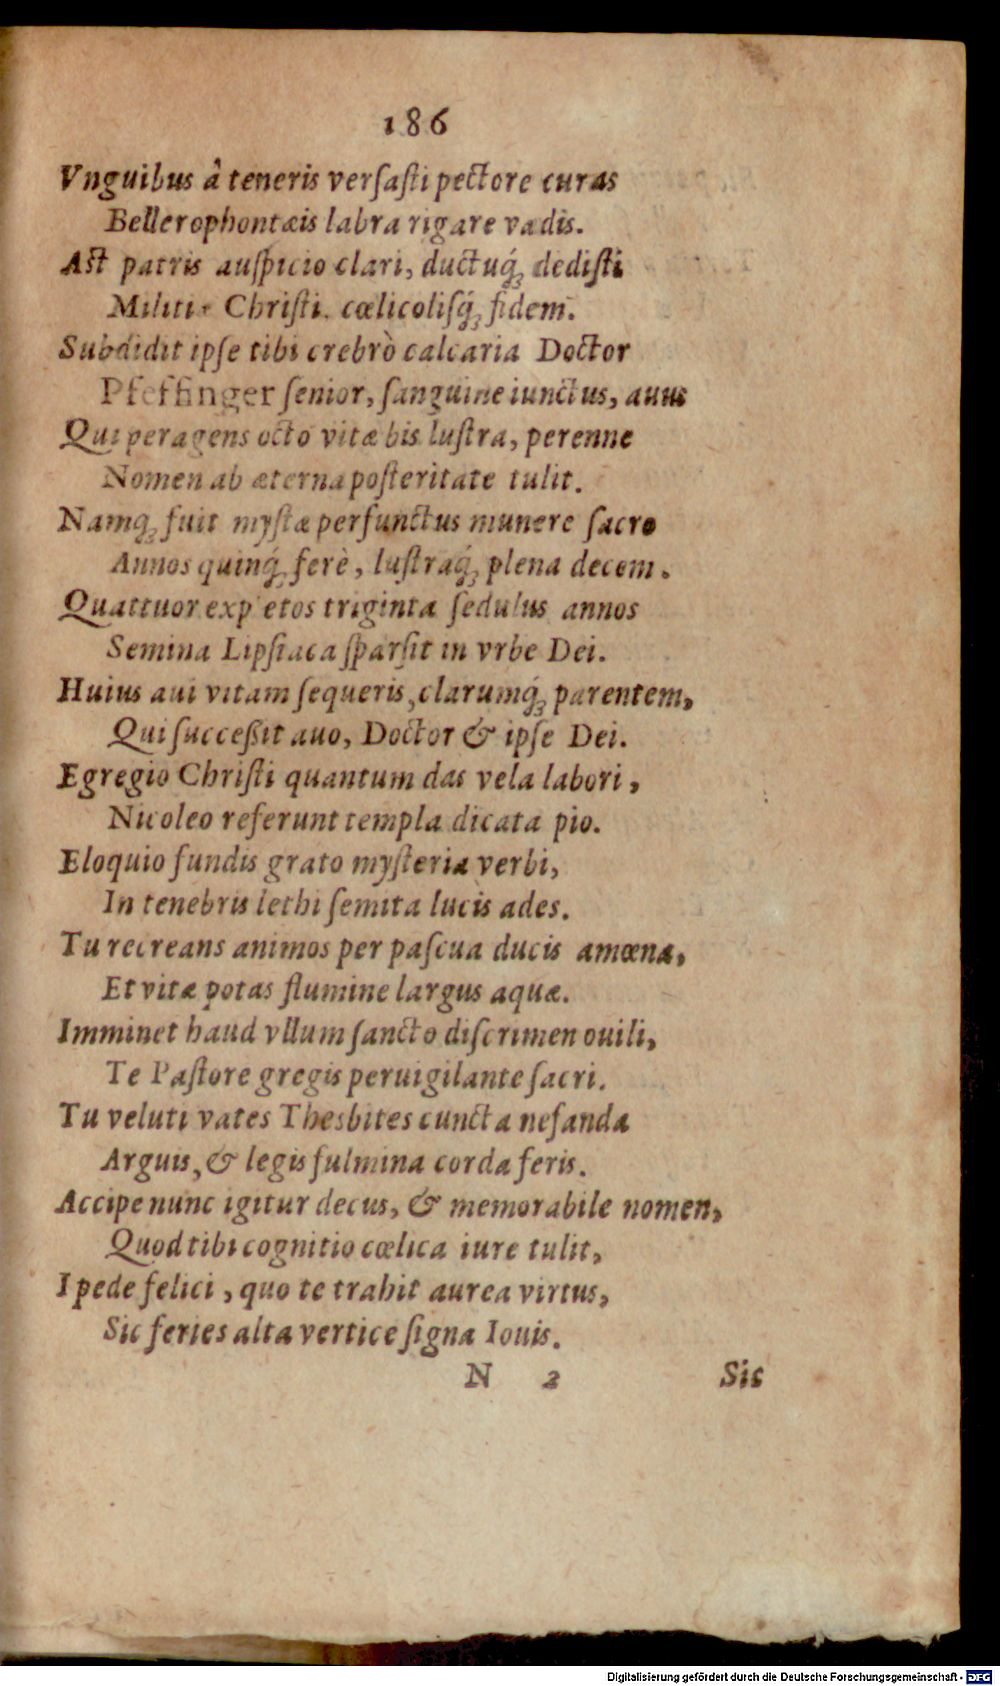 186
Vnguibus â teneris versasti pectore curas
Bellerophontæis labra rigare vadis.
Ast patris auspicio clari, ductuq́; dedisti
Militi Christi cœlicolisq́; fidem.
Subdidit ipse tibi crebrò calcaria Doctor
Pfeffinger senior, sanguine iunctus, auus
Qui peragens octo vitæ bis lustra, perenne
Nomen ab æterna posteritate tulit.
Namq; fuit mystæ perfunctus munere sacro
Annos quinq́; ferè, lustraq́; plena decem.
Quattuor exp etos triginta sedulus annos
Semina Lipsiaca sparsit in vrbe Dei.
Huius aui vitam sequeris, clarumq́; parentem,
Qui successit auo, Doctor & ipse Dei.
Egregio Christi quantum das vela labori,
Nicoleo referunt templa dicata pio.
Eloquio fundis grato mysteria verbi,
In tenebris lethi semita lucis ades.
Tu recreans animos per pascua ducis amœna,
Et vitæ potas flumine largus aquæ.
Imminet haud vllum sancto discrimen ouili,
Te Pastore gregis peruigilante sacri.
Tu veluti vates Thesbites cuncta nefanda
Arguis, & legis fulmina corda feris.
Accipe nunc igitur decus, & memorabile nomen,
Quod tibi cognitio cœlica iure tulit,
I pede felici, quo te trahit aurea virtus,
Sic feries alta vertice signa Iouis.
N 2 Sic
Digitalisierung gefördert durch die Deutsche Forschungsgemeinschaft - DFG